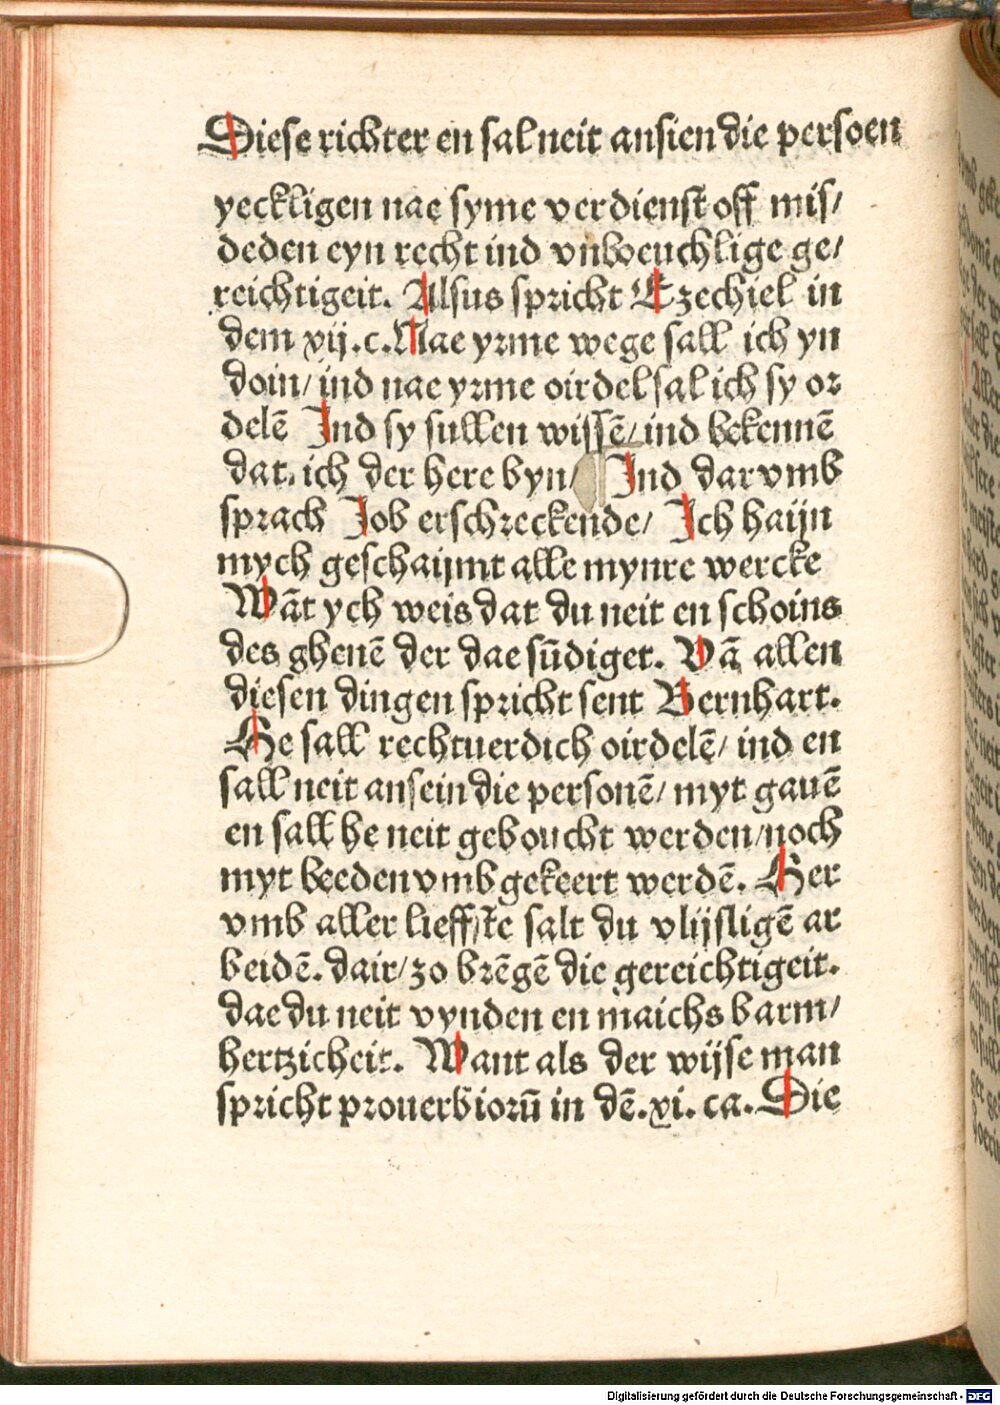 Diese richter en sal neit ansien die persoen
yeckligen nae syme verdienst off mis/
deden eyn recht ind vnboeuchlige ge/
reichtigeit. Alsus spricht Ezechiel in
dem vij.c. Nae yrme wege sall ich yn
doin/ ind nae yrme oirdel sal ich sy or
delē Ind sy sullen wissē/ ind bekennē
dat, ich der here byn/ Ind dar vmb
sprach Job erschreckende/ Ich haijn
mych geschaijmt alle mynre wercke
Wāt ych weis dat du neit en schoins
des ghenē der dae sūdiget. Vā allen
diesen dingen spricht sent Bernhart.
He sall rechtuerdich oirdelē/ ind en
sall neit ansein die personē/ myt gauē
en sall he neit geboucht werden/ noch
myt beeden vmb gekeert werdē. Her
vmb aller lieffste salt du vlijsligē ar
beidē. dair/ zo brēgē die gereichtigeit.
dae du neit vynden en maichs barm/
hertzicheit. Want als der wijse man
spricht prouerbiorū in dē.xi. ca. Die
Digitalisierung gefördert durch die Deutsche Forschungsgemeinschaft - DFG